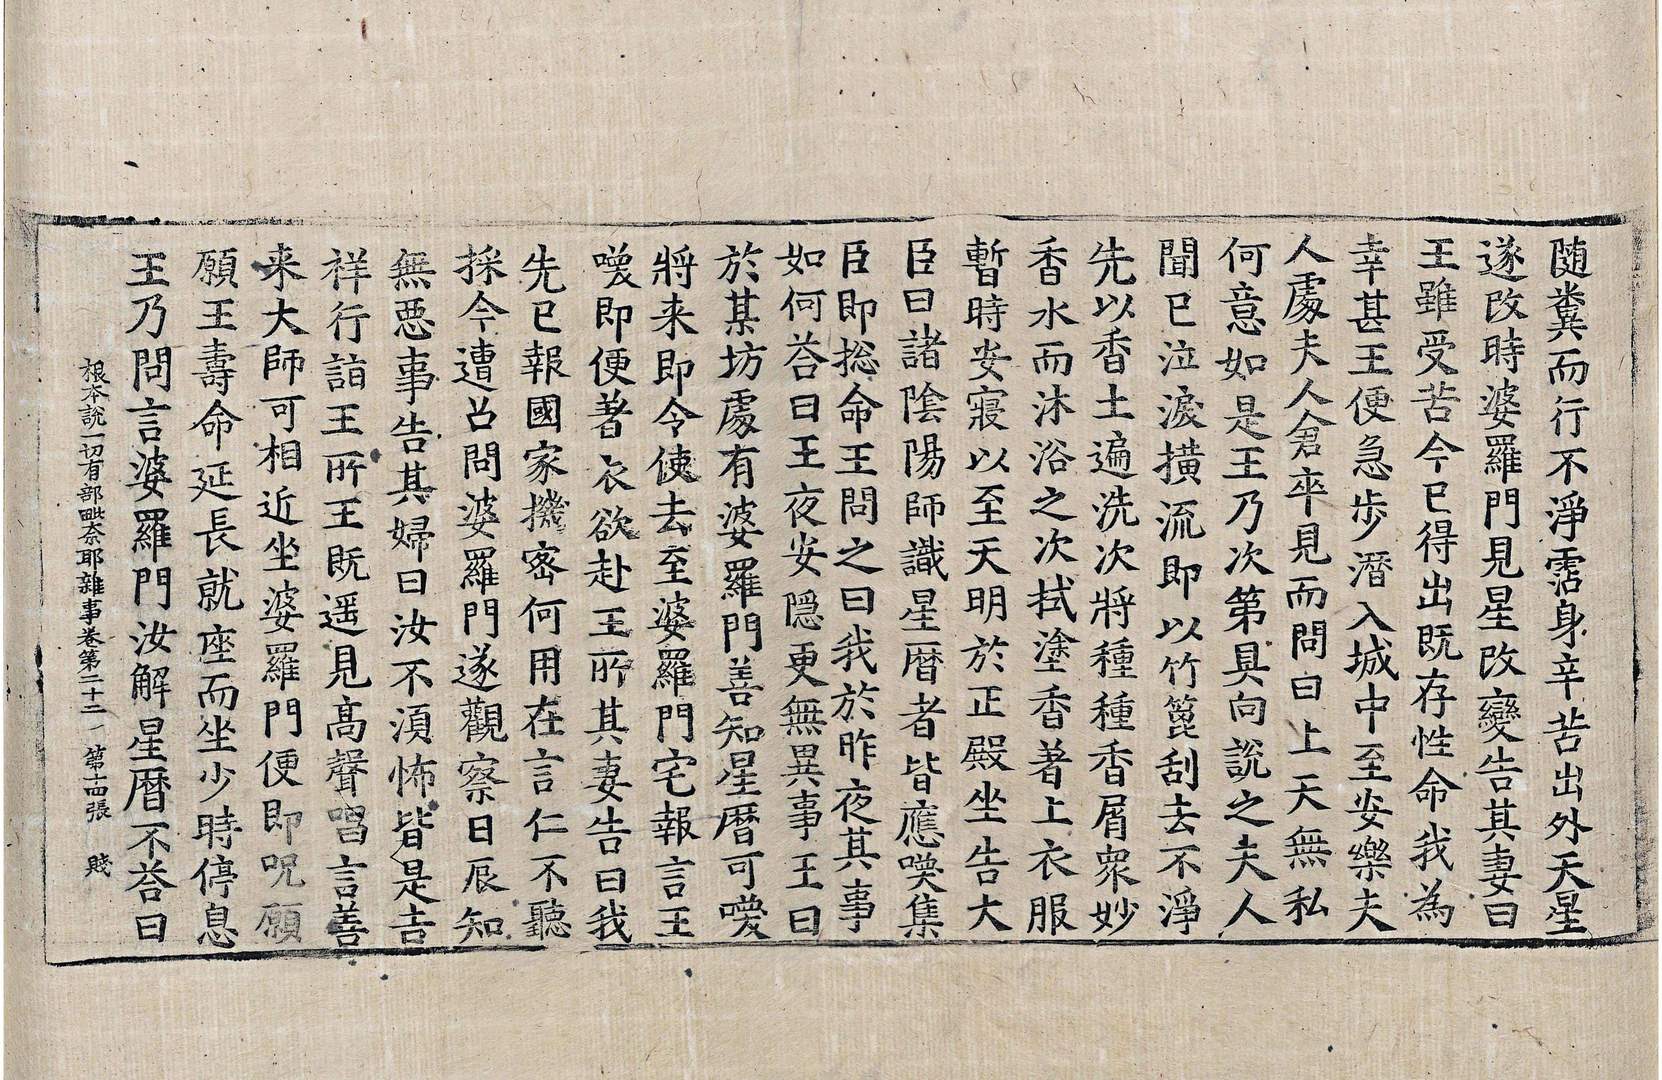 随糞而行不淨霑身辛苦出外天星
遂改時婆羅門見星改變告其妻曰
王雖受苦今已得出既存性命我為
幸甚王便急步潛入城中至安樂夫
人處夫人倉卒見而問曰上天無私
何意如是王乃次第具向說之夫人
聞已泣淚横流即以竹篦刮去不淨
先以香土遍洗次將種種香屑眾妙
香水而沐浴之次拭塗香著上衣服
暫時安寢以至天明於正殿坐告大
臣曰諸陰陽師識星曆者皆應喚集
臣即捴命王問之曰我於昨夜其事
如何荅曰王夜安隱更無異事王曰
於某坊處有婆羅門善知星曆可喚
將来即令使去至婆羅門宅報言王
喚即便著衣欲赴王所其妻告曰我
先已報國家機密何用在言仁不聽
採今遭召問婆羅門遂觀察日辰知
無惡事告其婦曰汝不須怖皆是吉
祥行詣王所王既遥見高聲唱言善
来大師可相近坐婆羅門便即呪願
願王壽命延長就座而坐少時停息
王乃問言婆羅門汝解星曆不荅曰
根本說一切有部毗奈耶雜事卷第二十二　第十四張　賤